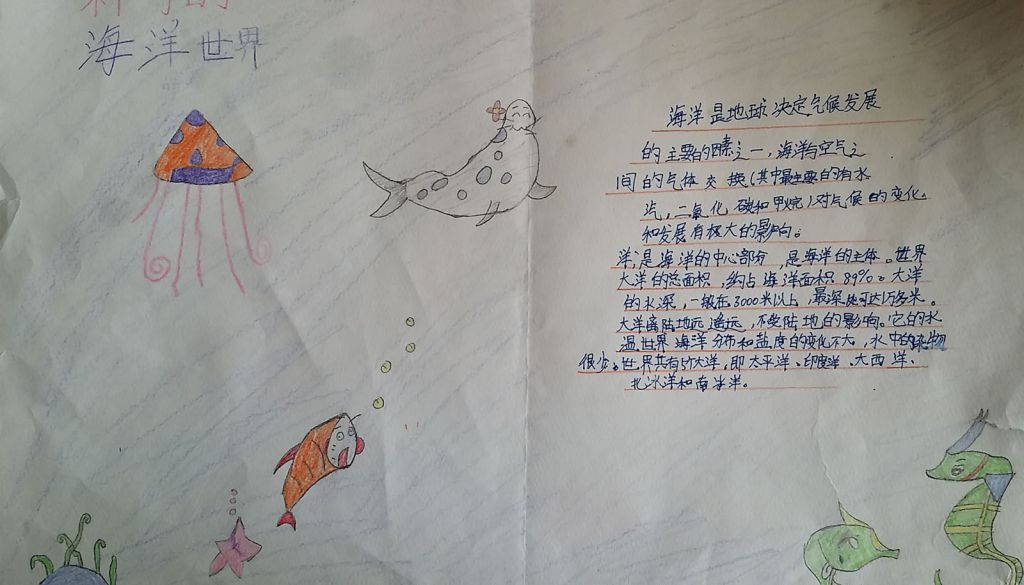 的
海洋世界
海洋是地球决定气候发展
的主要的因素之一,海洋与空气之
间的气体交换(其中最主要的有水
汽,二氧化碳和甲烷)对气候的变化
和发展有极大的影响。
洋,是海洋的中心部分,是海洋的主体。世界
大洋的总面积,约占海洋面积89%。大洋
的水深,一般在3000米以上,最深处可达1万多米。
大洋离陆地远遥远,不受陆地的影响。它的水
温世界海洋分布和盐度的变化不大,水中的
很少。世界共有5大洋,即太平洋、印度洋、大西洋、
北冰洋和南冰洋。